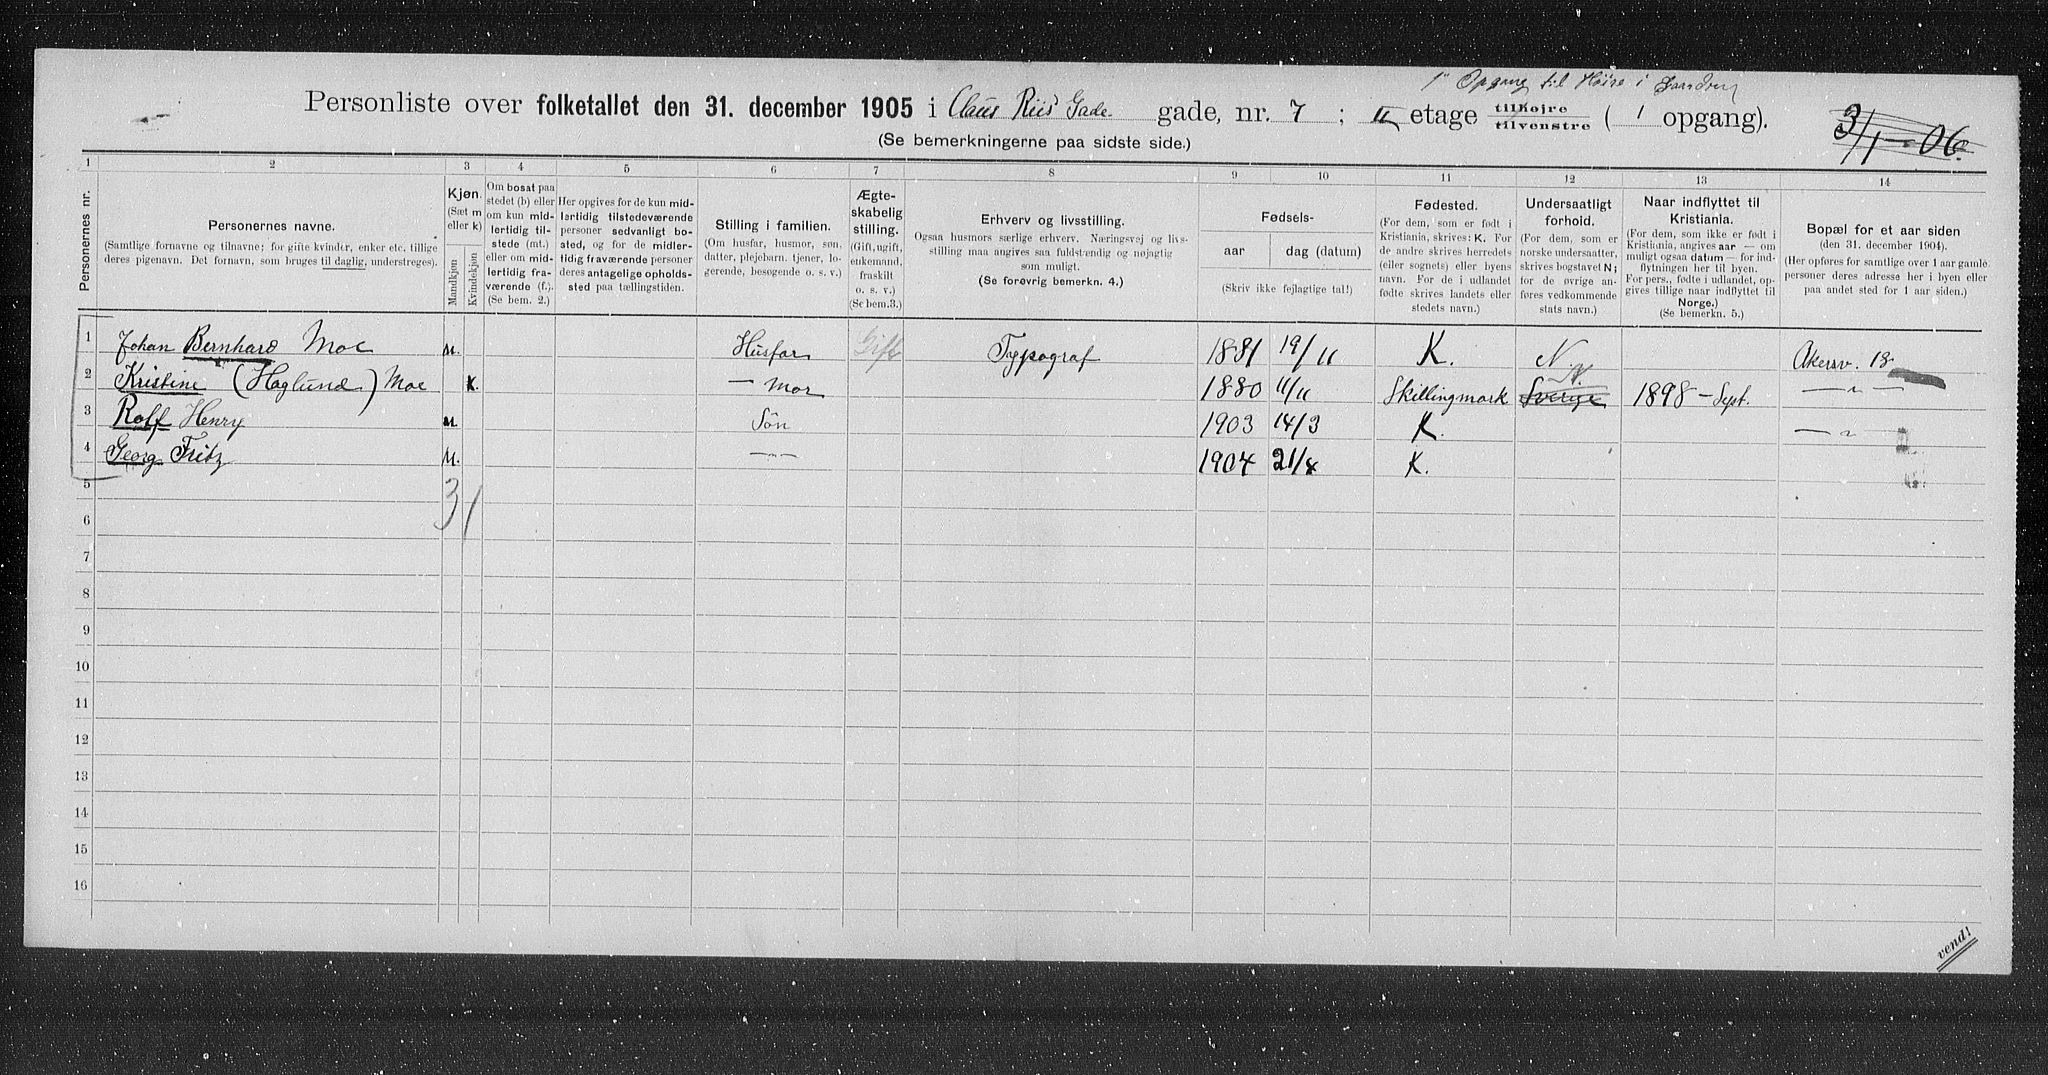 1ste Opgang til Høire i Gaarden
Personliste over folketallet den 31. december 1905 i Claus Riis' Gade. gade, nr. 7 ; II etage tilhøjre tilvenstre ( 1 opgang).
3/1-06.
(Se bemerkningerne paa sidste side.)
1 2 3 4 5 6 7 8 9 10 11 12 13 14
Personernes nr.
Personernes navne.
(Samtlige fornavne og tilnavne; for gifte kvinder, enker etc. tillige
deres pigenavn. Det fornavn, som bruges til daglig, understreges).
Kjøn.
(Sæt m
eller k)
Mandkjøn
Kvindekjøn
Om bosat paa
stedet (b) eller
om kun mid-
lertidig til-
stede (mt.)
eller om mid-
lertidig fra-
værende (f.).
(Se bem. 2.)
Her opgives for de kun mid-
lertidig tilstedeværende
personer sedvanligt bo-
sted, og for de midler-
tidig fraværende personer
deres antagelige opholds-
sted paa tællingstiden.
Stilling i familien.
(Om husfar, husmor, søn,
datter, plejebarn. tjener, lo-
gerende, besøgende o. s. v.)
Ægte-
skabelig
stilling.
(Gift, ugift,
enkemand,
fraskilt
o. s. v.)
(Se bem.3.)
Erhverv og livsstilling.
Ogsaa husmors særlige erhverv. Næringsvej og livs-
stilling maa angives saa fuldstændig og nøjagtig
som muligt.
(Se forøvrig bemerkn. 4.)
Fødsels-
aar
dag (datum)
(Skriv ikke fejlagtige tal!)
Fødested.
(For dem, som er født i
Kristiania, skrives: K. For
de andre skrives herredets
(eller sognets) eller byens
navn. For de i udlandet
fødte skrives landets eller
stedets navn.)
Undersaatligt
forhold.
(For dem, som er
norske undersaatter,
skrives bogstavet N;
for de øvrige an-
føres vedkommende
stats navn.)
Naar indflyttet til
Kristiania.
(For dem, som ikke er født i
Kristiania, angives aar — om
muligt ogsaa datum — for ind-
flytningen her til byen.
For pers., fødte i udlandet, op-
gives tillige naar indflyttet til
Norge.)
(Se bemerkn. 5.)
Bopæl for et aar siden
(den 31. december 1904).
(Her opføres for samtlige over 1 aar gamle
personer deres adresse her i byen eller
paa andet sted for 1 aar siden.)
1 Johan Bernhard Moe m. Husfar Gift Typograf 1881 19/11 K. N. Akersv. 18
2 Kristine (Haglund) Moe k. — mor 1880 11/11 Skillingmark Sverige N. 1898 – Sept. — " —
3 Rolf Henry m Søn 1903 14/3 K. — "
4 Georg Fritz m. — — 1904 21/8 K.
5 3 1
6
7
8
9
10
11
12
13
14
15
16
vend!